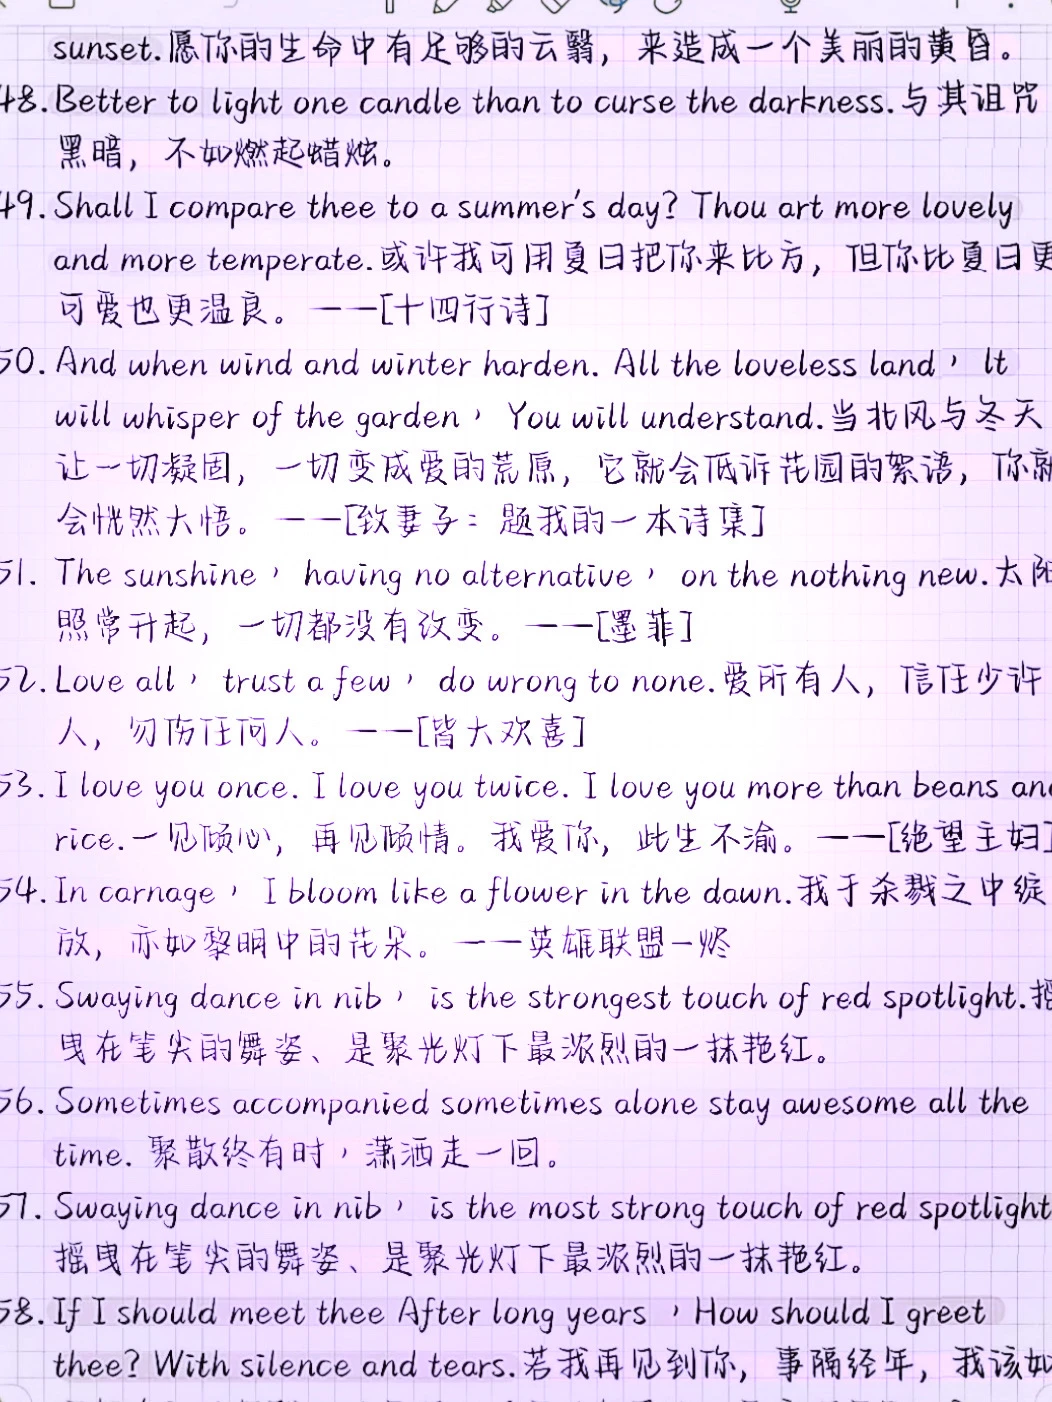 sunset.愿你的生命中有足够的云翳，来造成一个美丽的黄昏。
48. Better to light one candle than to curse the darkness.与其诅咒
黑暗，不如燃起蜡烛。
49. Shall I compare thee to a summer's day? Thou art more lovely
and more temperate.或许我可用夏日把你来比方，但你比夏日更
可爱也更温良。——[十四行诗]
50. And when wind and winter harden. All the loveless land，lt
will whisper of the garden，You will understand.当北风与冬天
让一切凝固，一切变成爱的荒原，它就会低诉花园的絮语，你就
会恍然大悟。——[致妻子：题我的一本诗集]
51. The sunshine，having no alternative，on the nothing new.太阳
照常升起，一切都没有改变。——[墨菲]
52. Love all，trust a few，do wrong to none.爱所有人，信任少许
人，勿伤任何人。——[皆大欢喜]
53. I love you once. I love you twice. I love you more than beans and
rice.一见倾心，再见倾情。我爱你，此生不渝。——[绝望主妇]
54. In carnage，I bloom like a flower in the dawn.我于杀戮之中绽
放，亦如黎明中的花朵。——英雄联盟-烬
55. Swaying dance in nib，is the strongest touch of red spotlight.摇
曳在笔尖的舞姿、是聚光灯下最浓烈的一抹艳红。
56. Sometimes accompanied sometimes alone stay awesome all the
time. 聚散终有时，潇洒走一回。
57. Swaying dance in nib，is the most strong touch of red spotlight
摇曳在笔尖的舞姿、是聚光灯下最浓烈的一抹艳红。
58. If I should meet thee After long years ，How should I greet
thee? With silence and tears.若我再见到你，事隔经年，我该如